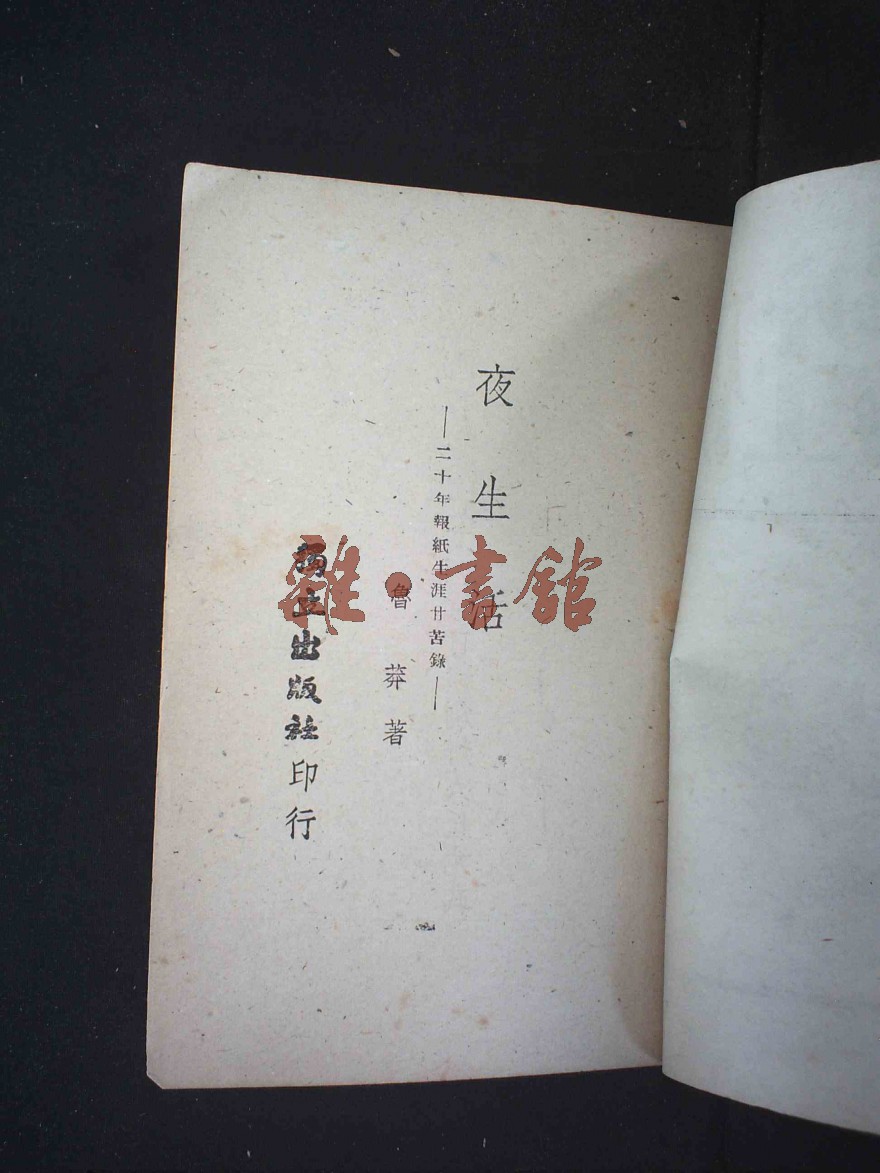 夜生活
—二十年報紙生涯甘苦錄—
魯莽著
獨立出版社印行
雜·書館